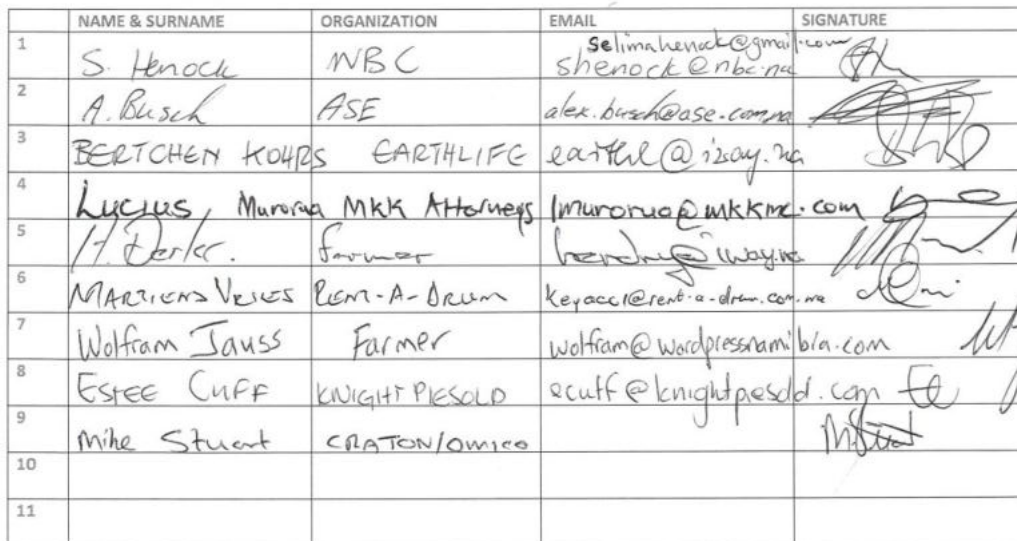 NAME & SURNAME ORGANIZATION EMAIL SIGNATURE
1 S. Henock NBC selimahenock@gmail.com
shenock@nbc.na
2 A. Busch ASE alex.busch@ase.com.na
3 BERTCHEN KOHRS EARTHLIFE
4 Lucius Murorua MKK Attorneys lmurorua@mkkmc.com
5 Farmer
6 RENT-A-DRUM
7 Wolfram Jauss Farmer wolfram@wordpressnamibia.com
8 ESTEE CUFF KNIGHT PIESOLD ecuff@knightpiesold.com
9 Mike Stuart CRATON/OMICO
10
11